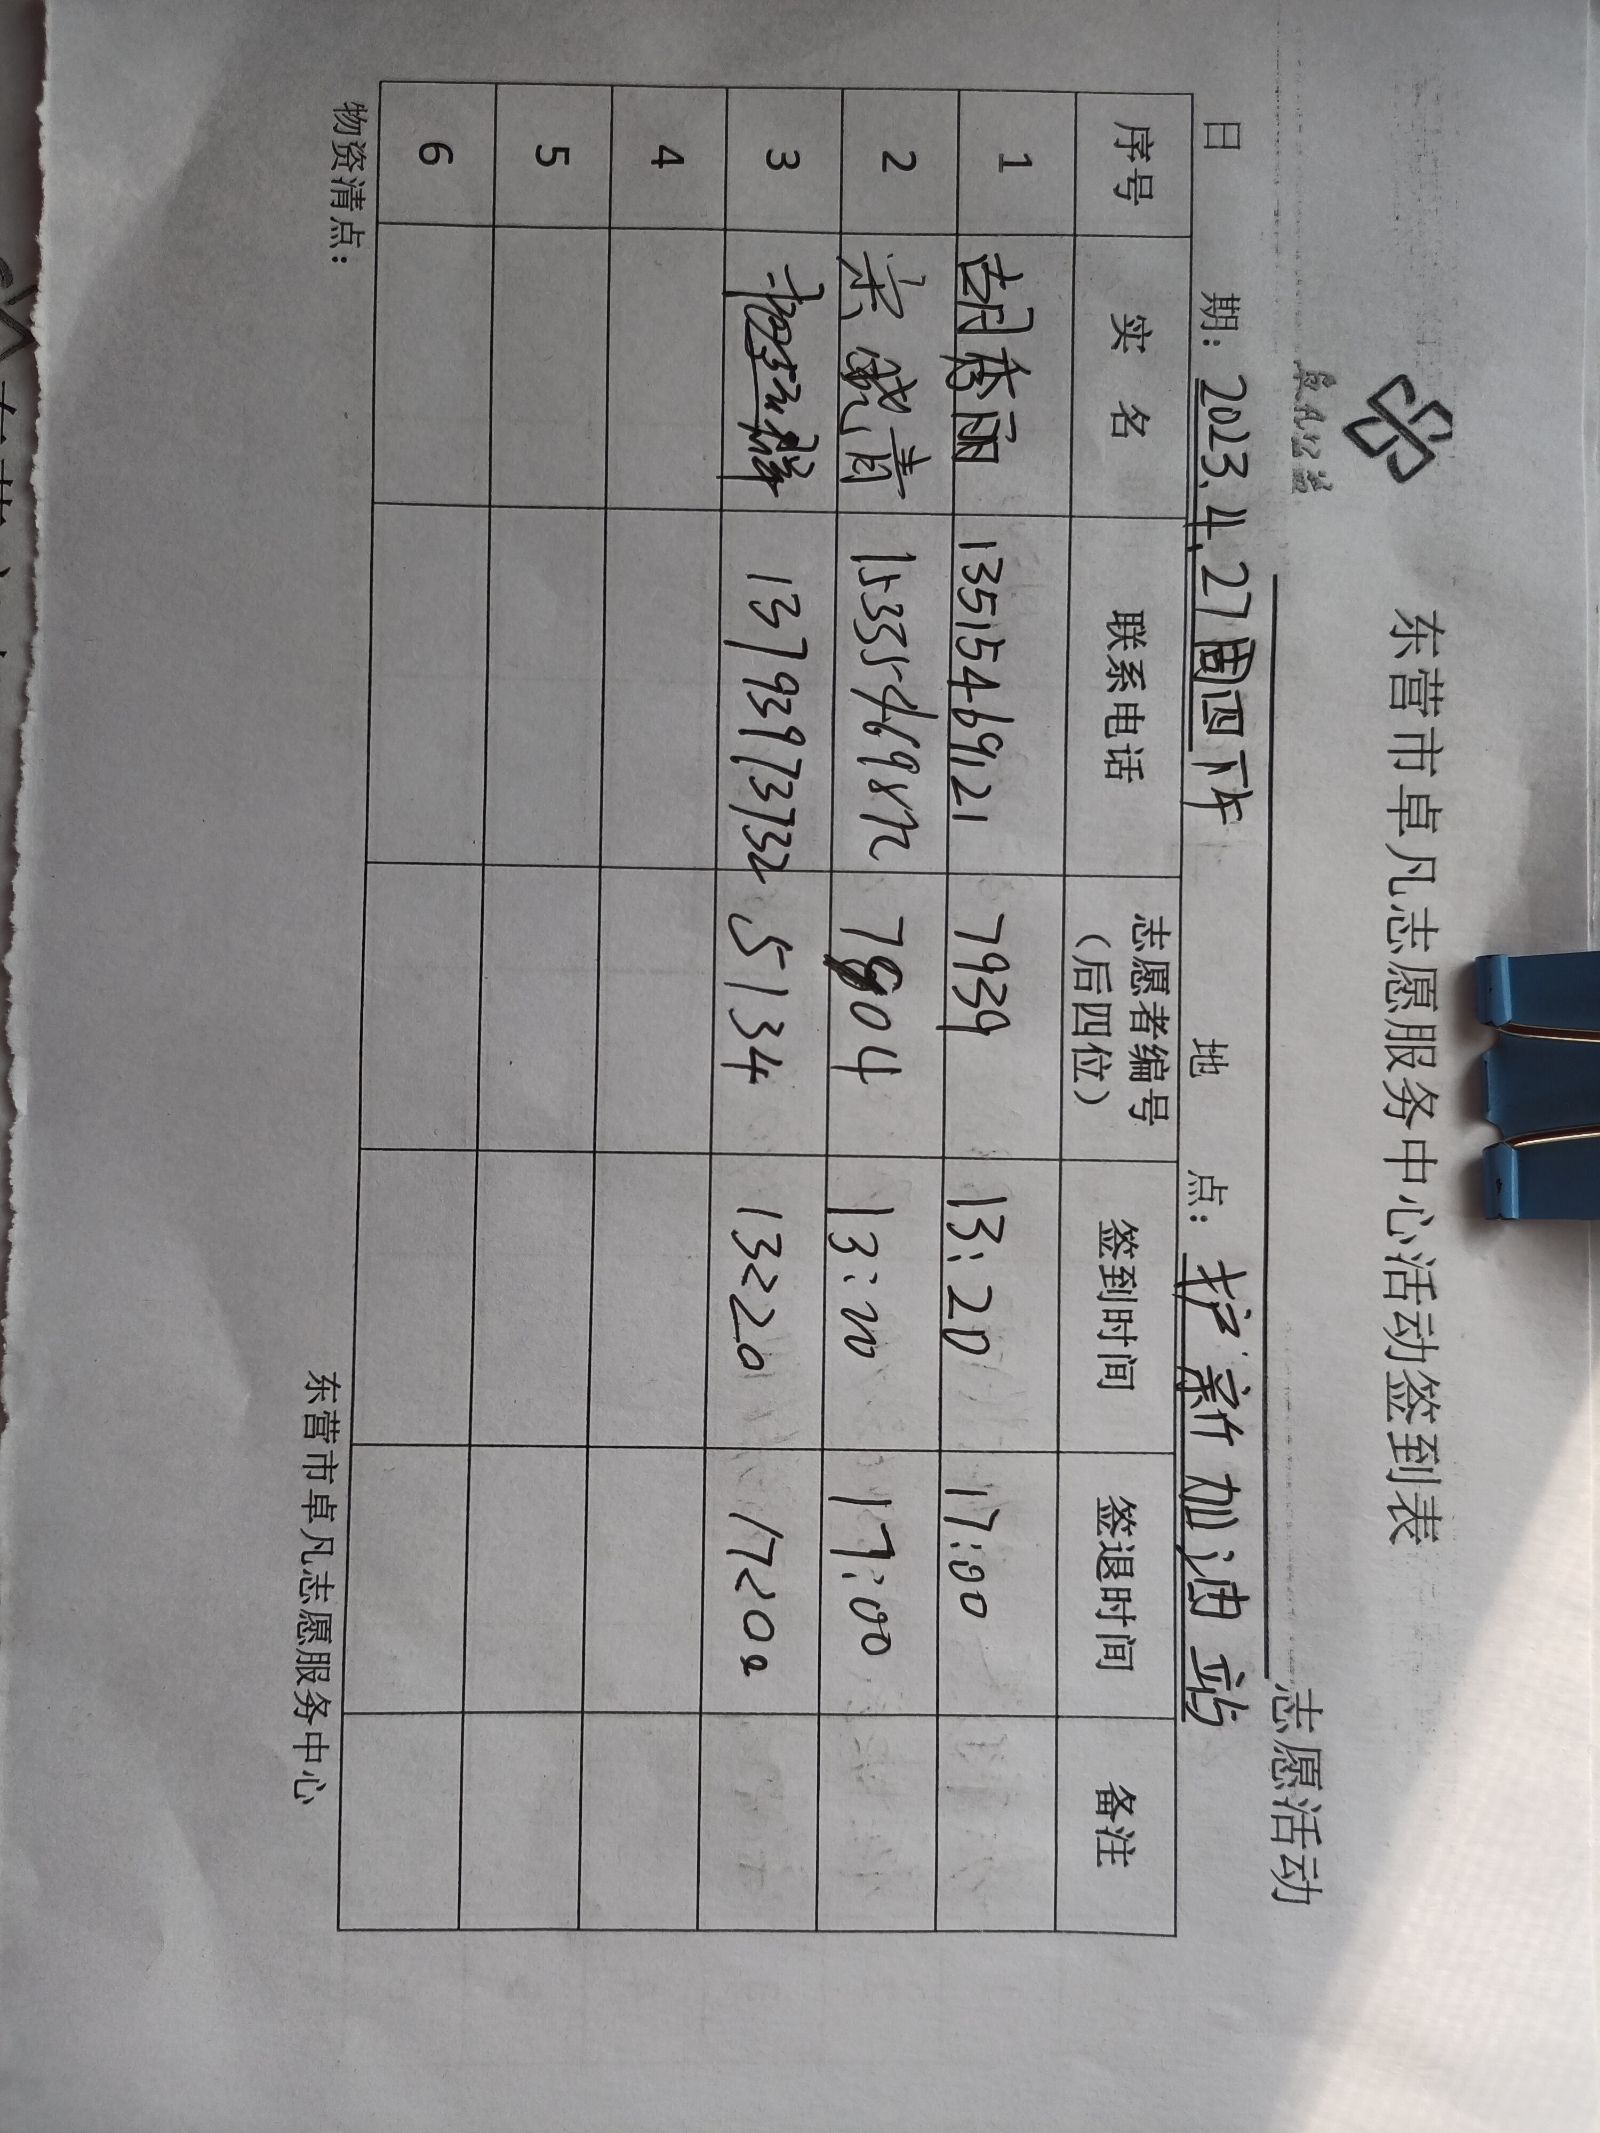 卓凡公益
东营市卓凡志愿服务中心活动签到表
志愿活动
日 期：2023.4.27周四下午 地 点：护新加油站
序号 实 名 联系电话 志愿者编号（后四位） 签到时间 签退时间 备注
1 胡秀丽 13515469121 7939 13:20 17:00
2 宋 青 7804 13:20 17:00
3 13793973732 5134 13:20 17:00
4
5
6
物资清点：
东营市卓凡志愿服务中心